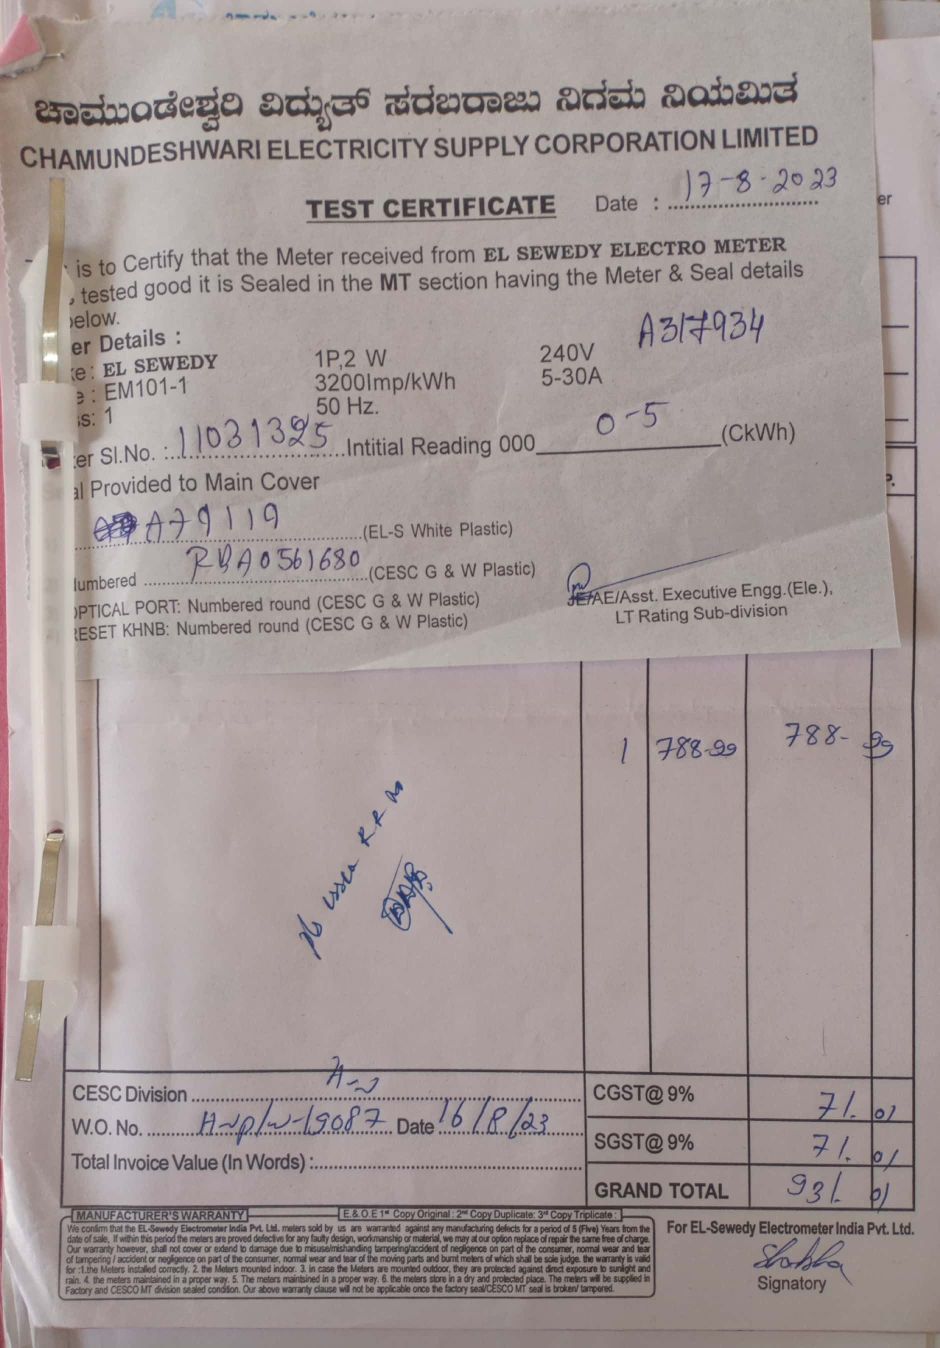 ಚಾಮುಂಡೇಶ್ವರಿ ವಿದ್ಯುತ್ ಸರಬರಾಜು ನಿಗಮ ನಿಯಮಿತ
CHAMUNDESHWARI ELECTRICITY SUPPLY CORPORATION LIMITED
TEST CERTIFICATE Date : 17-8-2023
er
is to Certify that the Meter received from EL SEWEDY ELECTRO METER
tested good it is Sealed in the MT section having the Meter & Seal details
elow.
er Details : A317934
ke: EL SEWEDY 1P,2 W 240V
e : EM101-1 3200Imp/kWh 5-30A
ss: 1 50 Hz.
ter Sl.No. : 11031325 Intitial Reading 000 0-5 (CkWh)
al Provided to Main Cover
P.
A79119 (EL-S White Plastic)
lumbered RBA0561680 (CESC G & W Plastic)
OPTICAL PORT: Numbered round (CESC G & W Plastic)
RESET KHNB: Numbered round (CESC G & W Plastic)
JE/AE/Asst. Executive Engg.(Ele.),
LT Rating Sub-division
1 788-99 788-99
CESC Division
CGST@ 9% 71. 01
W.O. No. Date 16/8/23
SGST@ 9% 71. 01
Total Invoice Value (In Words) :
GRAND TOTAL 931. 01
MANUFACTURER'S WARRANTY E.& O.E 1st Copy Original : 2nd Copy Duplicate: 3rd Copy Triplicate :
We confirm that the EL-Sewedy Electrometer India Pvt. Ltd. meters sold by us are warranted against any manufacturing defects for a period of 5 (Five) Years from the
date of sale, If within this period the meters are proved defective for any faulty design, workmanship or material, we may at our option replace of repair the same free of charge.
Our warranty however, shall not cover or extend to damage due to misuse/mishanding tampering/accident of negligence on part of the consumer, normal wear and tear
of tampering / accident or negligence on part of the consumer, normal wear and tear of the moving parts and burnt meters of which shall be sole judge. the warranty is valid
for :1.the Meters installed correctly. 2. the Meters mounted indoor. 3. in case the Meters are mounted outdoor, they are protected against direct exposure to sunlight and
rain. 4. the meters maintained in a proper way. 5. The meters maintsined in a proper way. 6. the meters store in a dry and protected place. The meters will be supplied in
Factory and CESCO MT division sealed condition. Our above warranty clause will not be applicable once the factory seal/CESCO MT seal is broken/ tampered.
For EL-Sewedy Electrometer India Pvt. Ltd.
Signatory